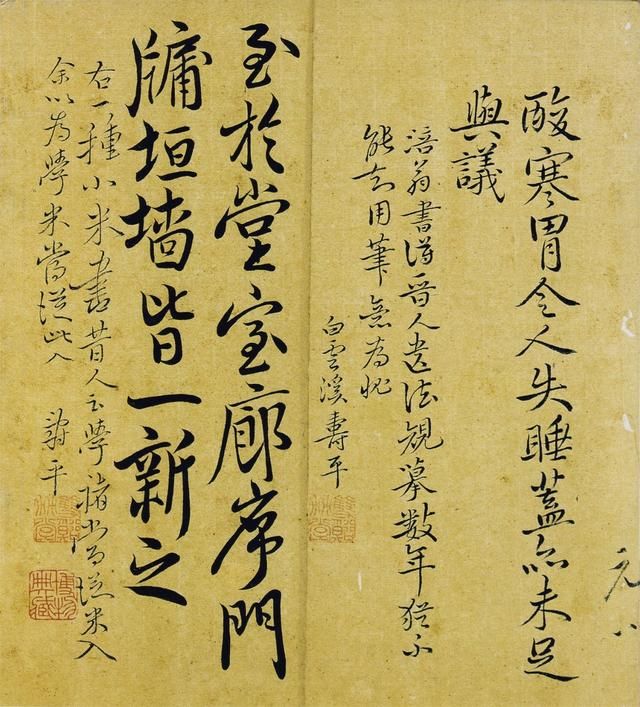 元
酸寒胃令人失睡蓋亦未足
與議
涪翁書得晉人遺法規摹數年猶不
能用筆為愧
白雲溪壽平
至於堂室廊序門
牖垣墻皆一新之
右一種小米書昔人云學褚當從米入
余以為學米當從此入 壽平